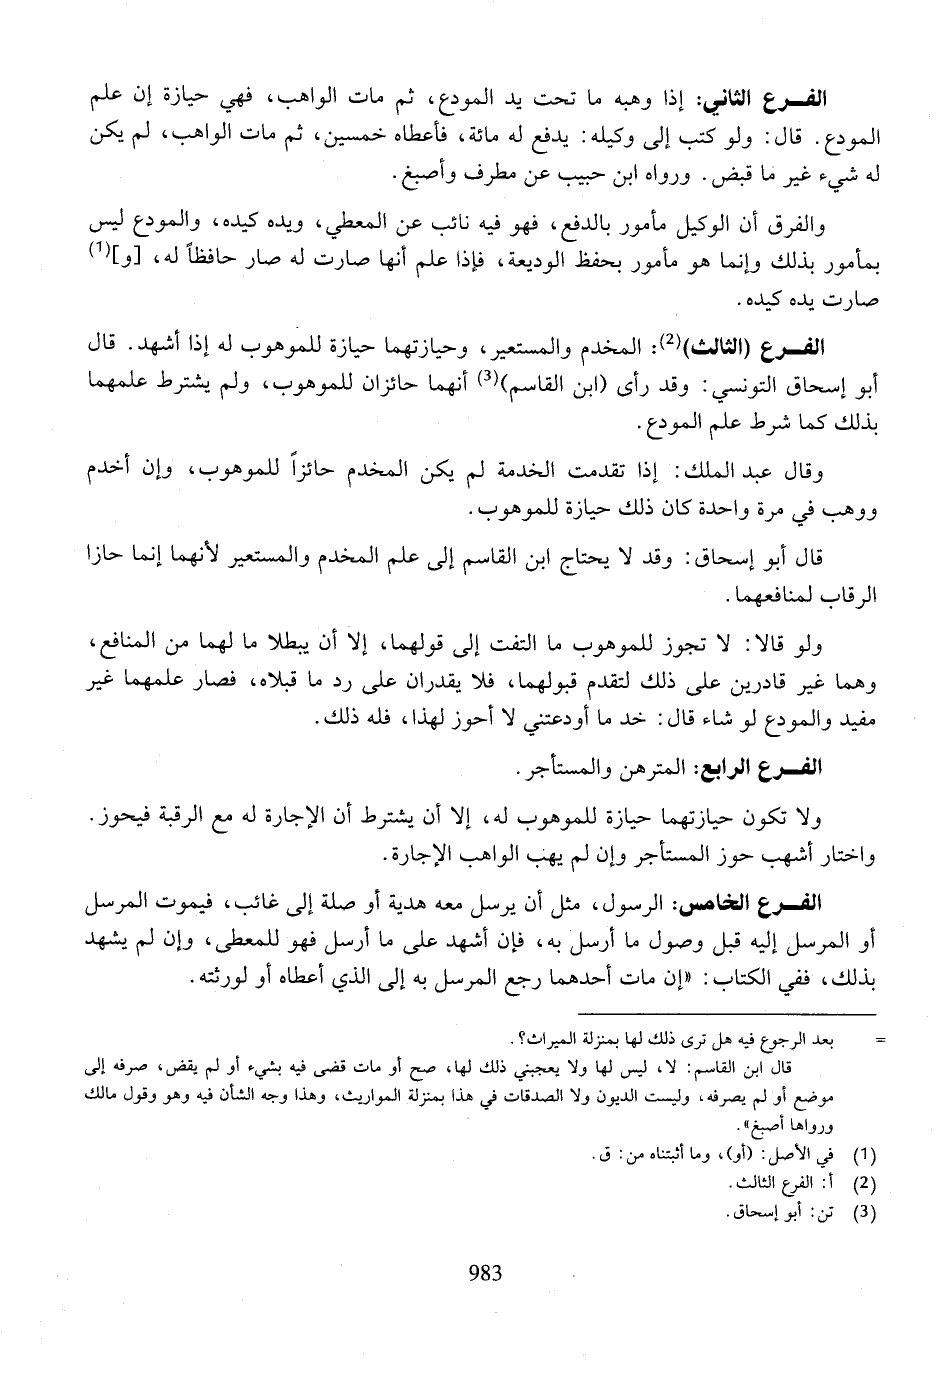 الفـــرع الثاني: إذا وهبه ما تحت يد المودع، ثم مات الواهب، فهي حيازة إن علم
المودع. قال: ولو كتب إلى وكيله: يدفع له مائة، فأعطاه خمسين، ثم مات الواهب، لم يكن
له شيء غير ما قبض. ورواه ابن حبيب عن مطرف وأصبغ.
والفرق أن الوكيل مأمور بالدفع، فهو فيه نائب عن المعطي، ويده كيده، والمودع ليس
بمأمور بذلك وإنما هو مأمور بحفظ الوديعة، فإذا علم أنها صارت له صار حافظاً له، [و](1)
صارت يده كيده.
الفـــرع (الثالث)(2): المخدم والمستعير، وحيازتهما حيازة للموهوب له إذا أشهد. قال
أبو إسحاق التونسي: وقد رأى (ابن القاسم)(3) أنهما حائزان للموهوب، ولم يشترط علمهما
بذلك كما شرط علم المودع.
وقال عبد الملك: إذا تقدمت الخدمة لم يكن المخدم حائزاً للموهوب، وإن أخدم
ووهب في مرة واحدة كان ذلك حيازة للموهوب.
قال أبو إسحاق: وقد لا يحتاج ابن القاسم إلى علم المخدم والمستعير لأنهما إنما حازا
الرقاب لمنافعهما.
ولو قالا: لا تجوز للموهوب ما التفت إلى قولهما، إلا أن يبطلا ما لهما من المنافع،
وهما غير قادرين على ذلك لتقدم قبولهما، فلا يقدران على رد ما قبلاه، فصار علمهما غير
مفيد والمودع لو شاء قال: خد ما أودعتني لا أحوز لهذا، فله ذلك.
الفـــرع الرابع: المترهن والمستأجر.
ولا تكون حيازتهما حيازة للموهوب له، إلا أن يشترط أن الإجارة له مع الرقبة فيحوز.
واختار أشهب حوز المستأجر وإن لم يهب الواهب الإجارة.
الفـــرع الخامس: الرسول، مثل أن يرسل معه هدية أو صلة إلى غائب، فيموت المرسل
أو المرسل إليه قبل وصول ما أرسل به، فإن أشهد على ما أرسل فهو للمعطى، وإن لم يشهد
بذلك، ففي الكتاب: «إن مات أحدهما رجع المرسل به إلى الذي أعطاه أو لورثته.
= بعد الرجوع فيه هل ترى ذلك لها بمنزلة الميراث؟.
قال ابن القاسم: لا، ليس لها ولا يعجبني ذلك لها، صح أو مات قضى فيه بشيء أو لم يقض، صرفه إلى
موضع أو لم يصرفه، وليست الديون ولا الصدقات في هذا بمنزلة المواريث، وهذا وجه الشأن فيه وهو وقول مالك
ورواها أصبغ».
(1) في الأصل: (أو)، وما أثبتناه من: ق.
(2) أ: الفرع الثالث.
(3) تن: أبو إسحاق.
983